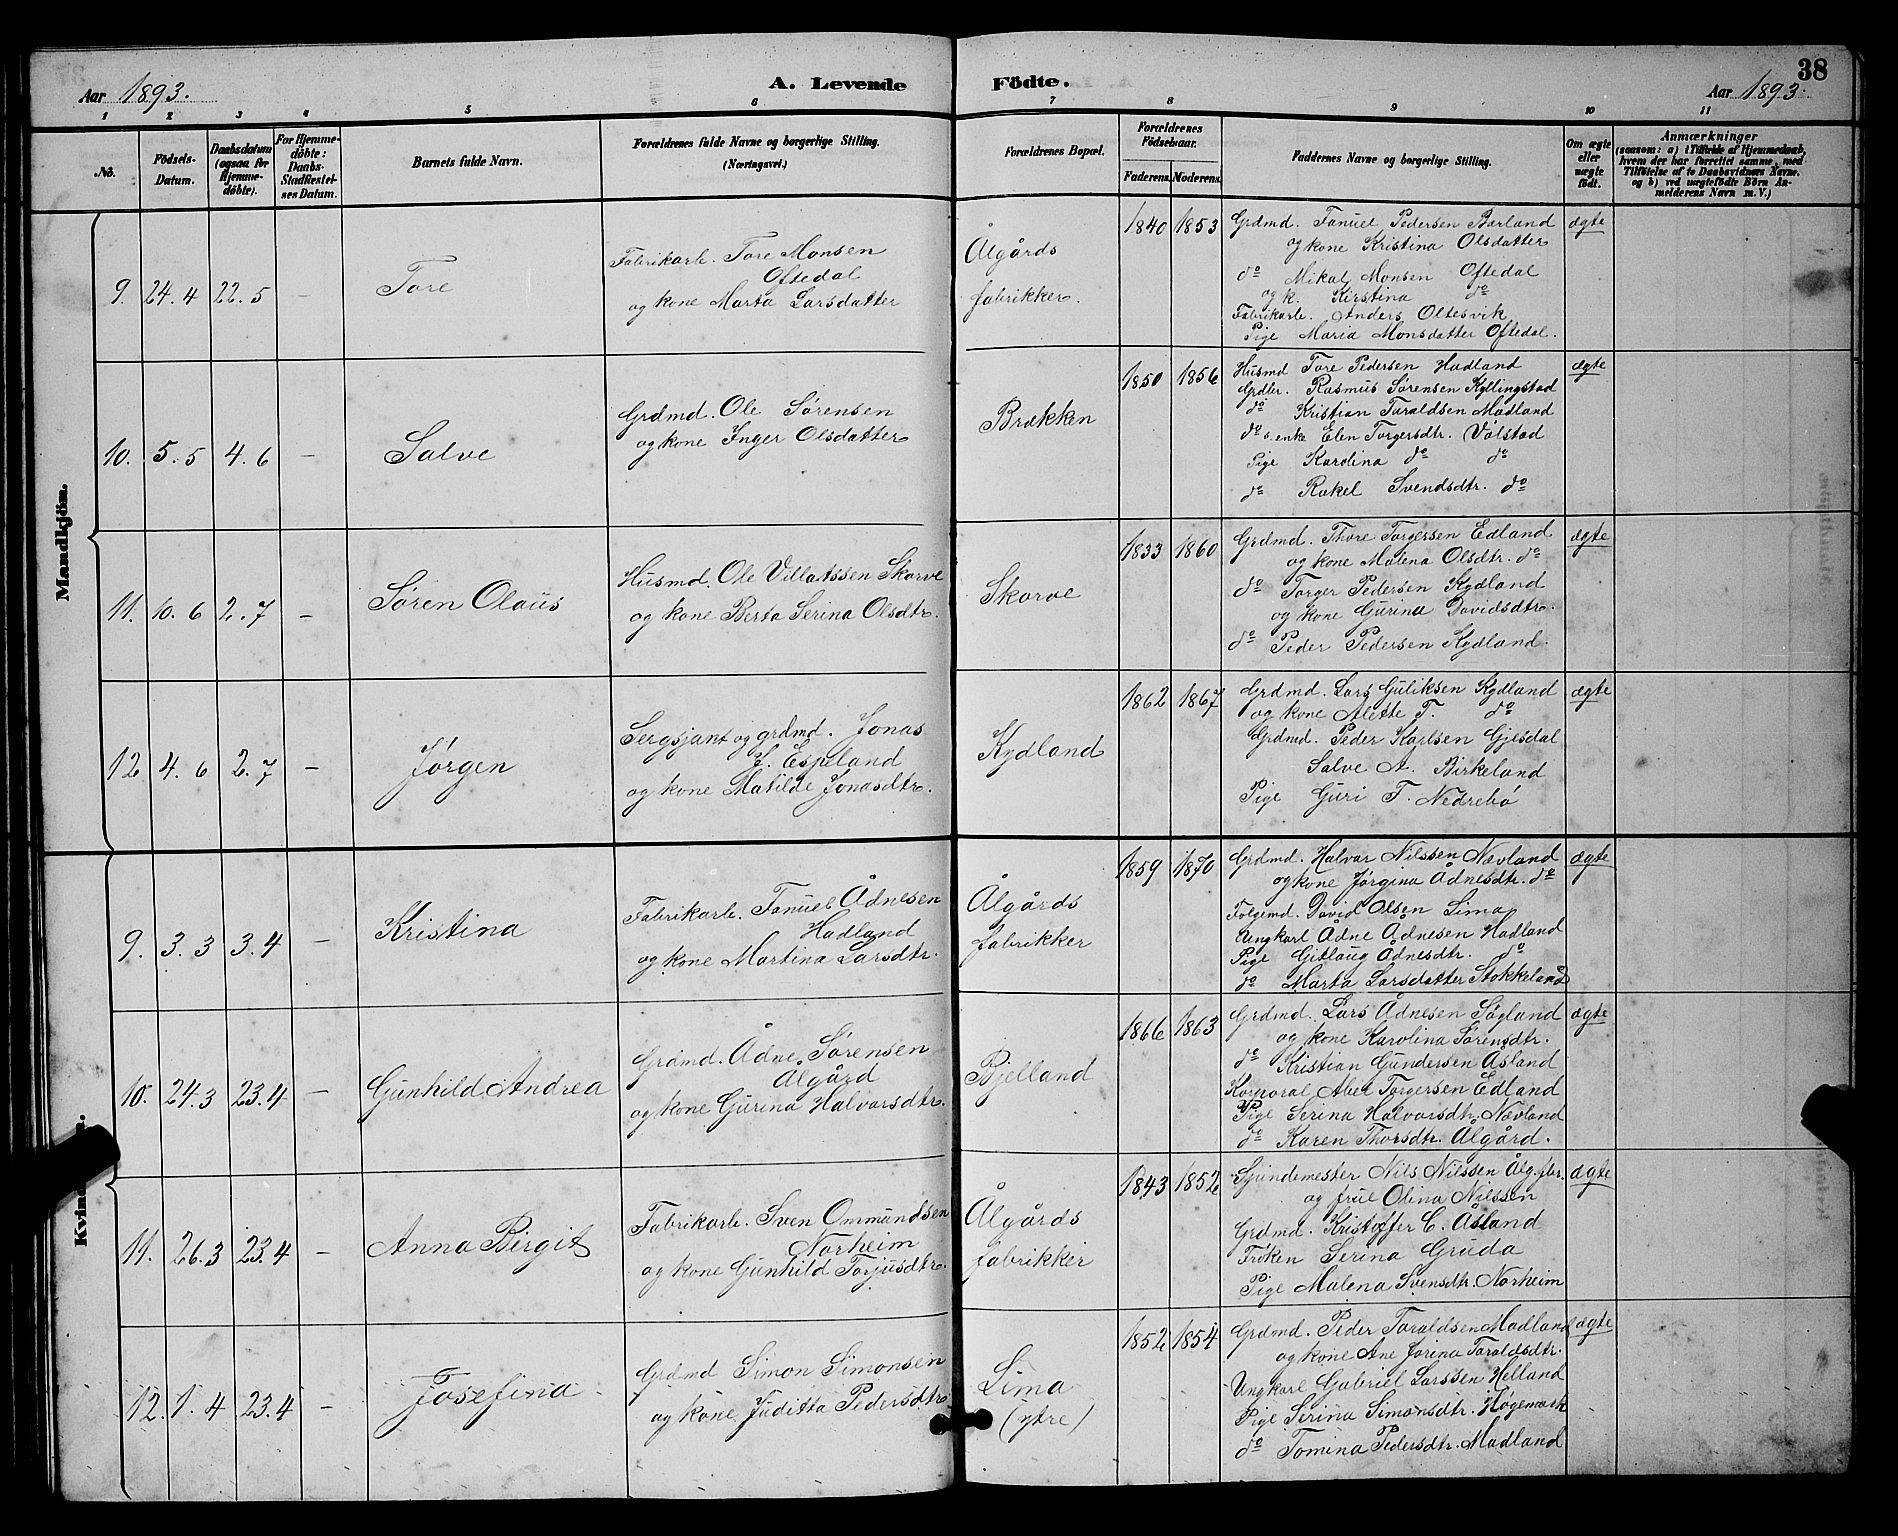 Aar 1893.
A. Levende Födte.
38
Aar 1893.
1 2 3 4 5 6 7 8 9 10 11
No.
Födsels-Datum.
Daabsdatum (ogsaa for Hjemme-döbte).
For Hjemme-döbte: Daabs-Stadfæstel-ses Datum.
Barnets fulde Navn.
Forældrenes fulde Navne og borgerlige Stilling. (Næringsvei.)
Forældrenes Bopæl.
Forældrenes Födselsaar.
Faderens. Moderens.
Faddernes Navne og borgerlige Stilling.
Om ægte eller uægte födt.
Anmærkninger
(saasom: a) i Tilfælde af Hjemmedaab, hvem der har forrettet samme, med Tilföielse af to Daabsvidners Navne. og b) ved uægtefödte Börn An-melderens Navn m. V.)
Mandkjön.
9. 24.4 22.5 –
Tore
Fabrikarb. Tore Monsen
Oftedal
og kone Marta Larsdatter
Ålgårds
fabrikker.
1840 1853
Grdmd. Tønuel Pedersen Bærland
og kone Kristina Olsdatter
do Mikal Monsen Oftedal
og k. Kirstina do
Fabrikarb. Anders Oltesvik
Pige Maria Monsdatter Oftedal.
ægte
10. 5.5 4.6 –
Salve
Grdmd. Ole Sørensen
og kone Inger Olsdatter
Brækken
1850 1856
Husmd Tore Pedersen Hadland
Grdbr. Rasmus Sørensen Kyllingstad
do Kristian Taraldsen Madland
do s. enke Elen Torgersdtr. Vølstad
Pige Karolina do do
do Rakel Svendsdtr. do
ægte
11. 10.6 2.7 –
Søren Olaus
Husmd. Ole Villatssen Skorve
og kone Berta Serina Olsdtr.
Skorve
1833 1860
Grdmd. Thore Torgersen Edland
og kone Malena Olsdtr. do
do Torger Pedersen Kydland
og kone Gurina Davidsdtr.
do Peder Pedersen Kydland.
ægte
12 4.6 2.7 –
Jørgen
Sergsjant og grdmd. Jonas
J. Espeland
og kone Matilde Jonasdtr.
Kydland
1862 1867
Grdmd. Lars Guliksen Kydland
og kone Alette T. do
Grdmd. Peder Karlsen Gjesdal
Salve A. Birkeland
Pige Guri T. Nedrebø
ægte
9. 3.3 3.4 –
Kristina
Fabrikarb. Tønuel Ådnesen
Hadland
og kone Martina Larsdtr.
Ålgårds
fabrikker
1859 1870
Grdmd. Halvar Nilssen Nævland
og kone Jørgina Ådnesdtr. do
Følgemd. David Olsen Lima
Ungkarl Ådne Ådnesen Hadland
Pige Gitlaug Ådnesdtr. do
do Marta Larsdatter Stokkeland
ægte
10. 24.3 23.4 –
Gunhild Andrea
Grdmd. Ådne Sørensen
Ålgård
og kone Gurina Halvarsdtr.
Bjelland
1866 1863
Grdmd. Lars Ådnesen Søyland
og kone Karolina Sørensdtr.
do Kristian Gundersen Åsland
Korporal Abel Torgersen Edland
Pige Serina Halvarsdtr. Nævland
do Karen Thorsdtr. Ålgård.
ægte
Kvind
11. 26.3 23.4 –
Anna Birgit
Fabrikarb. Sven Ommundsen
Norheim
og kone Gunhild Torjusdtr.
Ålgårds
fabrikker
1843 1852
Spindemester Nils Nilssen Ålg.fbr.
og frue Olina Nilssen
Grdmd. Kristoffer C. Åsland
Frøken Serina Gruda
Pige Malena Svensdtr. Norheim
ægte
12. 1.4 23.4 –
Josefina
Grdmd Simon Simonsen
og kone Juditta Pedersdtr.
Lima
(ytre)
1852 1854
Grdmd. Peder Taraldsen Madland
og kone Ane Jorina Taraldsdtr.
Ungkarl Gabriel Larssen Helland
Pige Serina Simonsdtr. Høgemork
do Tomina Pedersdtr. Madland
ægte